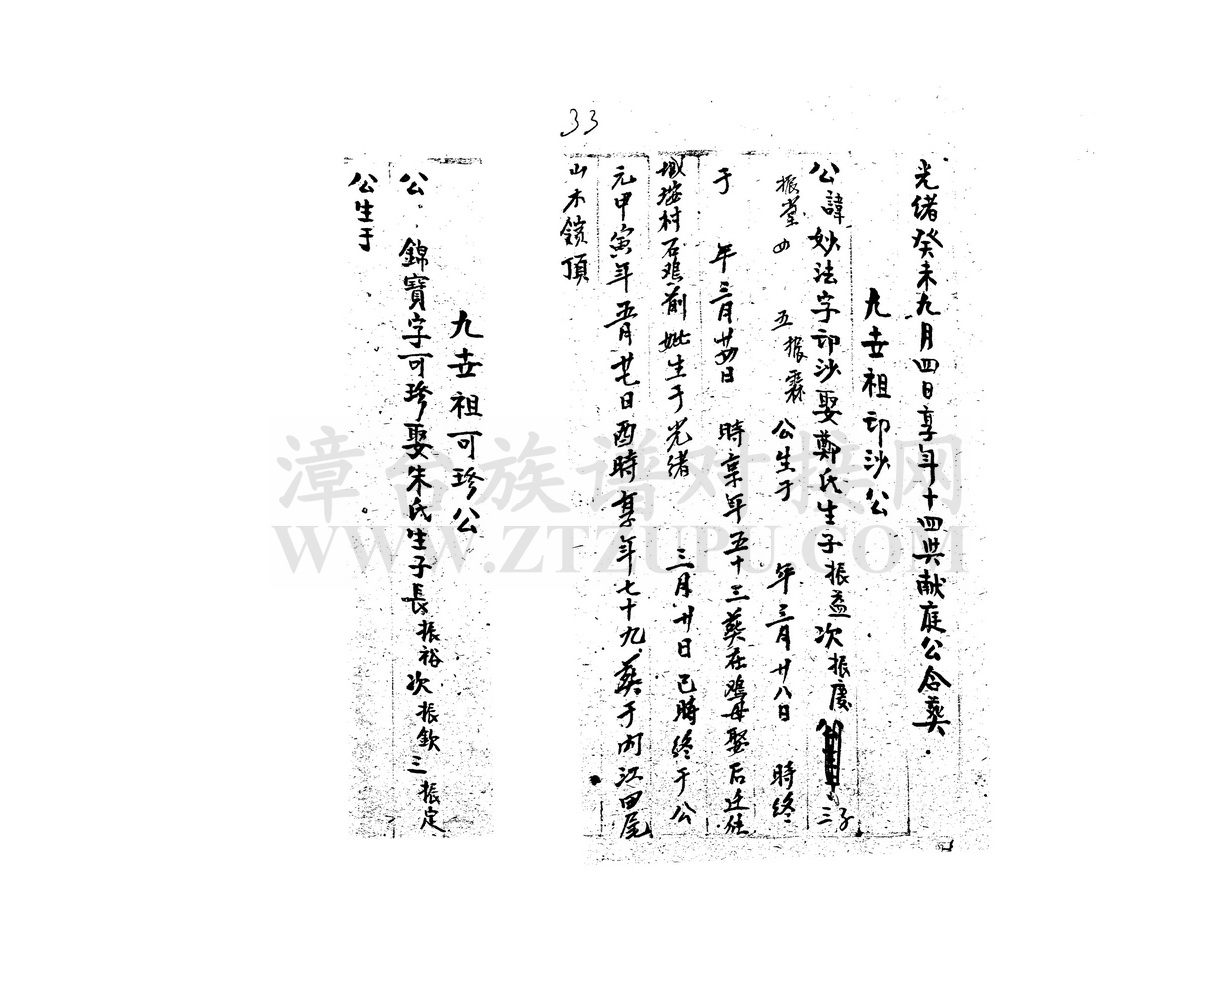 33
光绪癸未九月四日享年十四與献庭公合葵
九世祖印沙公
公諱妙法字印沙娶鄭氏生子振益次振慶 三子
振堂四 五振霖 公生于 年三月廿八日 時終
于 年三月廿四日 時享年五十三葵在鸡母娶后迁住
珹垵村石鸡前妣生于光绪 三月廿日巳時终于公
元甲寅年五月廿七日酉時享年七十九葵于内江田尾
山木鎖頂
九世祖可珍公
公 錦寶字可珍娶朱氏生子長振裕次振欽三振定
公生于
漳台族谱对接网
WWW.ZTZUPU.COM